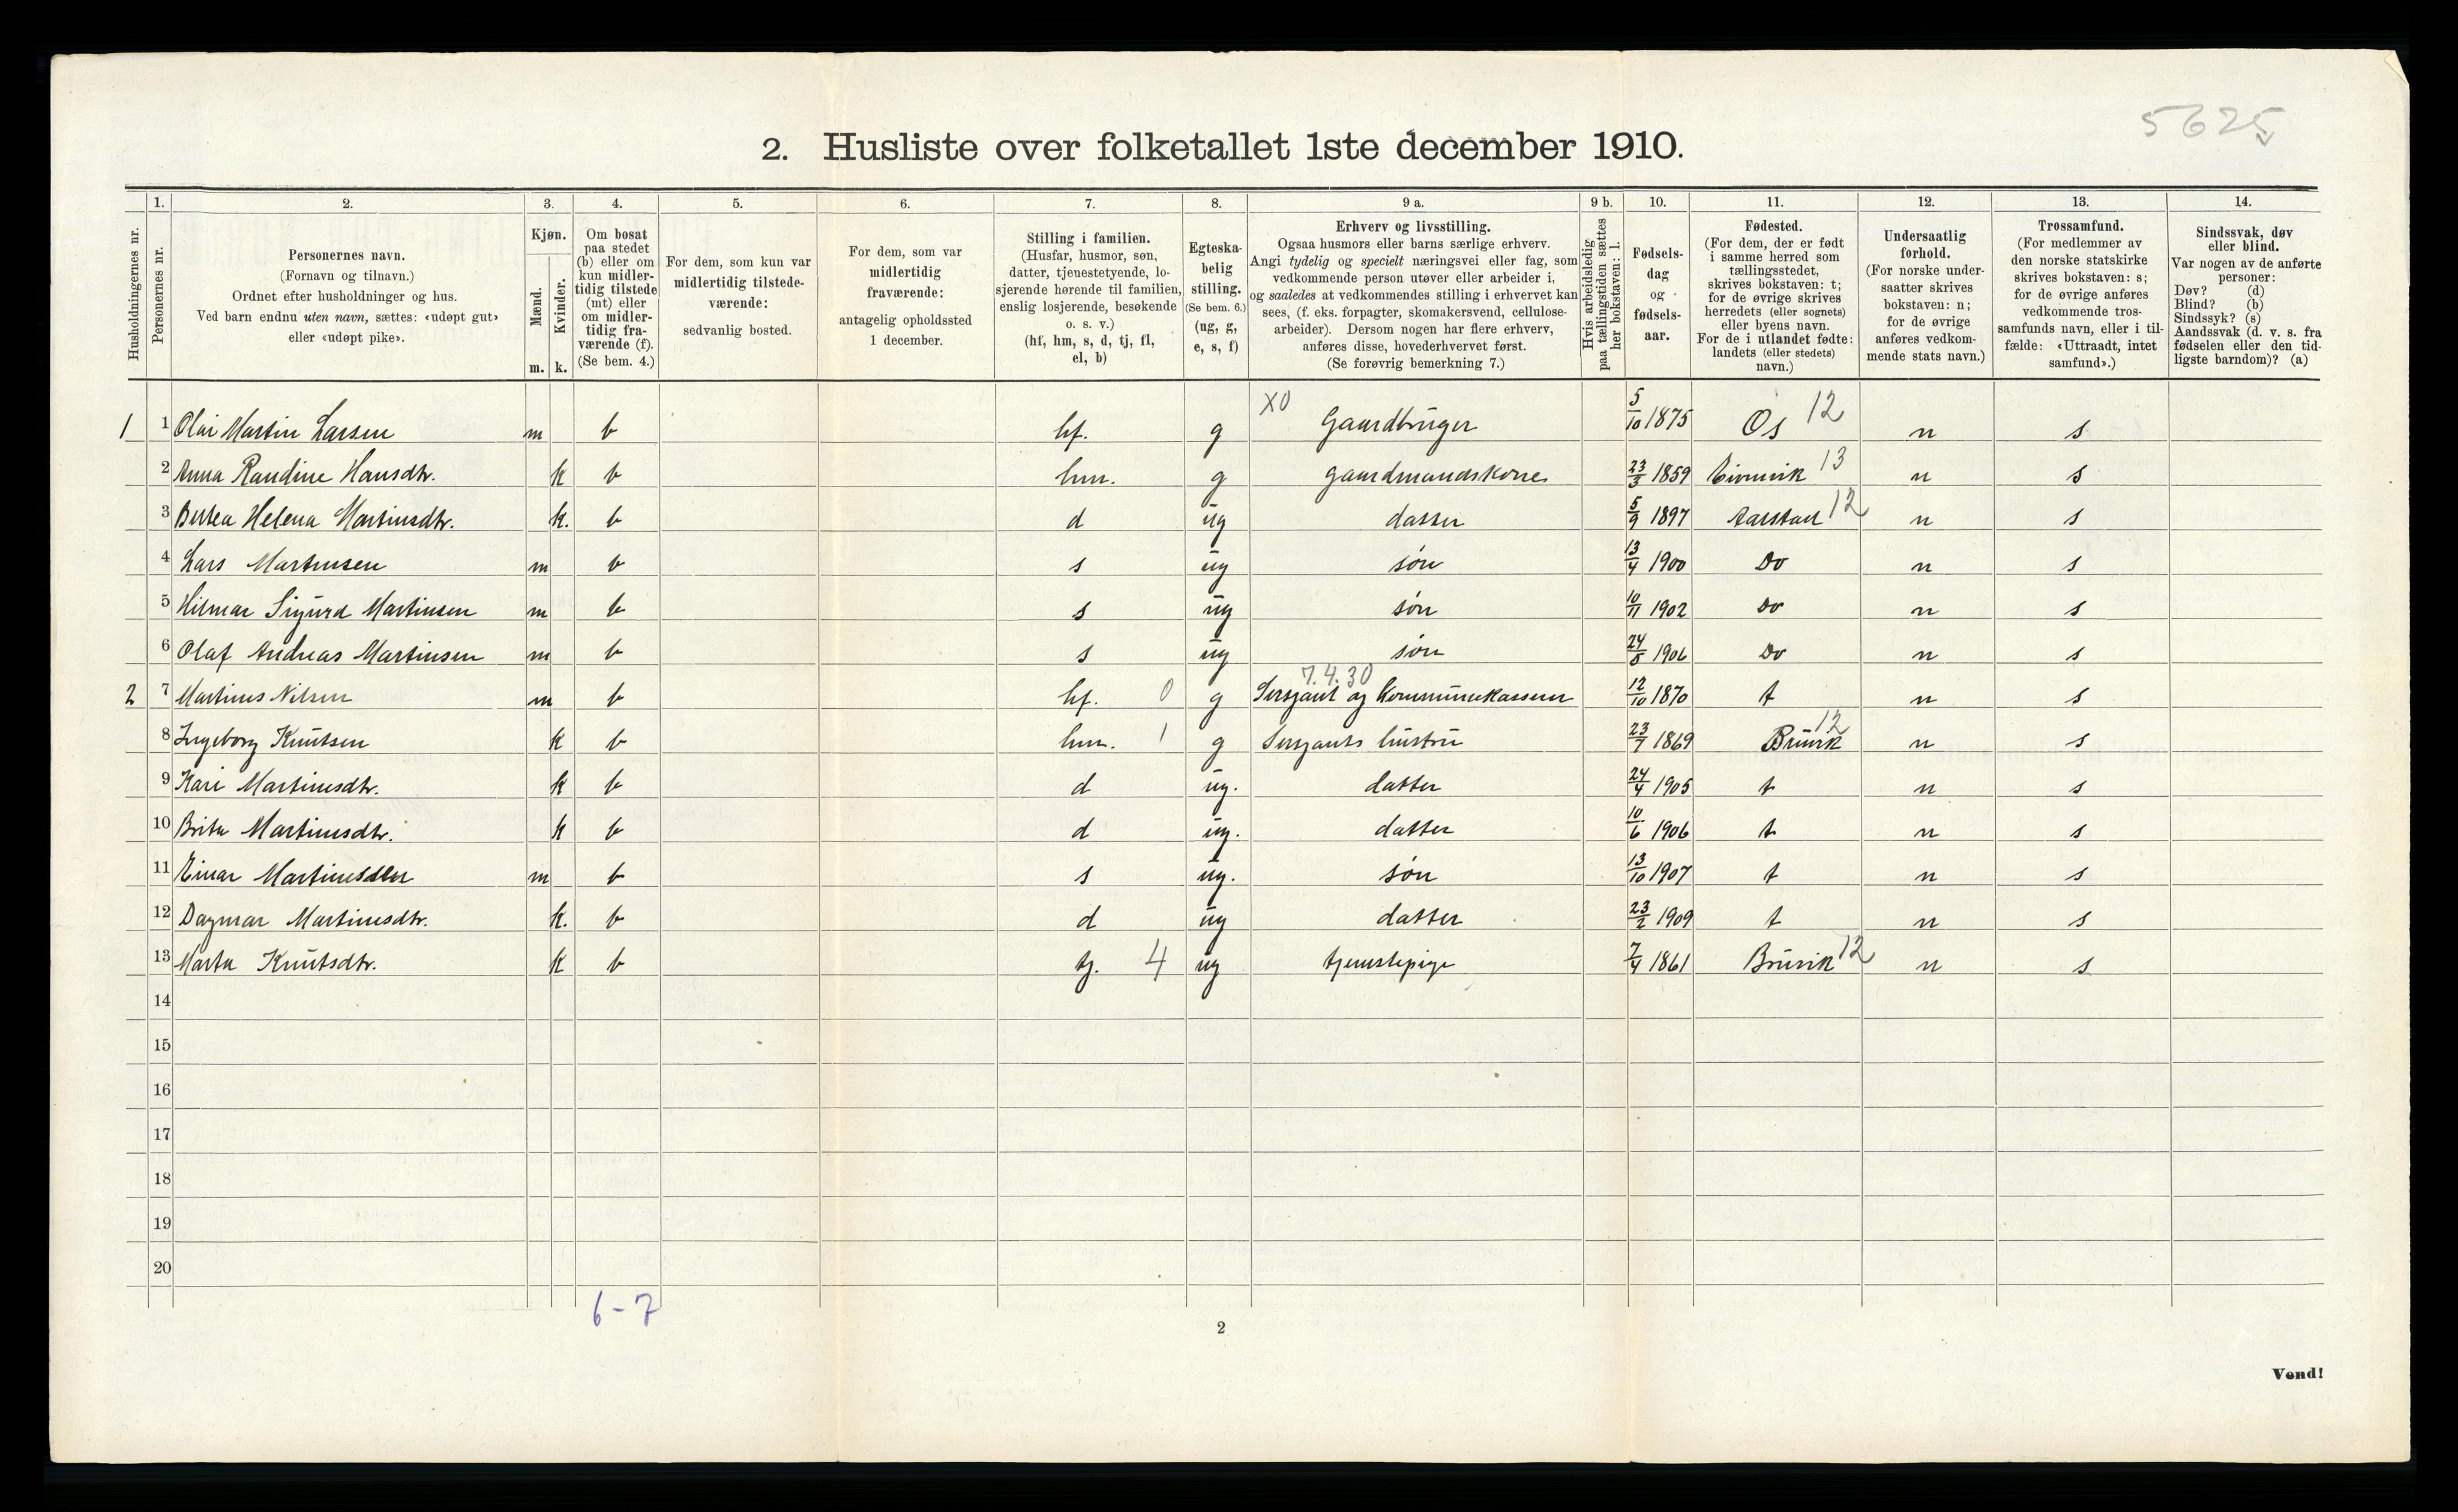 5625
2. Husliste over folketallet 1ste december 1910.
Husholdningernes nr.
1.
Personernes nr.
2.
Personernes navn.
(Fornavn og tilnavn.)
Ordnet efter husholdninger og hus.
Ved barn endnu uten navn, sættes: «udøpt gut»
eller «udøpt pike».
3.
Kjøn.
Mænd.
Kvinder.
m. k.
4.
Om bosat
paa stedet
(b) eller om
kun midler-
tidig tilstede
(mt) eller
om midler-
tidig fra-
værende (f).
(Se bem. 4.)
5.
For dem, som kun var
midlertidig tilstede-
værende:
sedvanlig bosted.
6.
For dem, som var
midlertidig
fraværende:
antagelig opholdssted
1 december.
7.
Stilling i familien.
(Husfar, husmor, søn,
datter, tjenestetyende, lo-
sjerende hørende til familien,
enslig losjerende, besøkende
o. s. v.)
(hf, hm, s, d, tj, fl,
el, b)
8.
Egteska-
belig
stilling.
(Se bem. 6.)
(ug, g,
e, s, f)
9 a.
Erhverv og livsstilling.
Ogsaa husmors eller barns særlige erhverv.
Angi tydelig og specielt næringsvei eller fag, som
vedkommende person utøver eller arbeider i,
og saaledes at vedkommendes stilling i erhvervet kan
sees, (f. eks. forpagter, skomakersvend, cellulose-
arbeider). Dersom nogen har flere erhverv,
anføres disse, hovederhvervet først.
(Se forøvrig bemerkning 7.)
9 b.
Hvis arbeidsledig
paa tællingstiden sættes
her bokstaven: l.
10.
Fødsels-
dag
og
fødsels-
aar.
11.
Fødested.
(For dem, der er født
i samme herred som
tællingsstedet,
skrives bokstaven: t;
for de øvrige skrives
herredets (eller sognets)
eller byens navn.
For de i utlandet fødte:
landets (eller stedets)
navn.)
12.
Undersaatlig
forhold.
(For norske under-
saatter skrives
bokstaven: n;
for de øvrige
anføres vedkom-
mende stats navn.)
13.
Trossamfund.
(For medlemmer av
den norske statskirke
skrives bokstaven: s;
for de øvrige anføres
vedkommende tros-
samfunds navn, eller i til-
fælde: «Uttraadt, intet
samfund».)
14.
Sindssvak, døv
eller blind.
Var nogen av de anførte
personer:
Døv? (d)
Blind? (b)
Sindssyk? (s)
Aandssvak (d. v. s. fra
fødselen eller den tid-
ligste barndom)? (a)
1 1 Olai Martin Larsen m b hf. g X0 Gaardbruger 5/10 1875 Os 12 n s
2 Anna Randine Hansdtr. k b hm. g gaardmandskone 23/3 1859 Eivinvik 13 n s
3 Bertea Helena Martinsdtr. k. b d ug datter 5/9 1897 Aarstad 12 n s
4 Lars Martinsen m b s ug søn 13/4 1900 Do n s
5 Hilmar Sigurd Martinsen m b s ug søn 10/11 1902 Do n s
6 Olaf Andreas Martinsen m b s ug søn 24/8 1906 Do n s
2 7 Martinus Nilsen m b hf. 0 g 7.4.30 Sersjant og Kommunekasserer 12/10 1870 t n s
8 Ingeborg Knutsen k b hm. 1 g Sersjants hustru 23/7 1869 Bruvik 12 n s
9 Kari Martinusdtr. k b d ug. datter 24/4 1905 t n s
10 Brita Martinusdtr. k b d ug. datter 10/6 1906 t n s
11 Einar Martinussen m b s ug. søn 13/10 1907 t n s
12 Dagmar Martinusdtr. k. b d ug datter 23/2 1909 t n s
13 Marta Knutsdtr. k b tj. 4 ug tjenstepige 7/4 1861 Bruvik 12 n s
14
15
16
17
18
19
20
6-7
2
Vend!